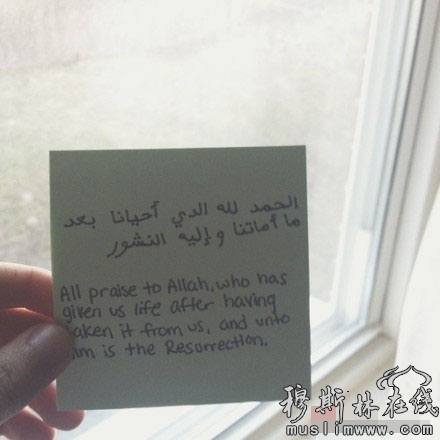 الحمد لله الدي أحيانا بعد
ما أماتنا وإليه النشور
All praise to Allah, who has
given us life after having
taken it from us, and unto
Him is the Resurrection.
穆斯林在线
muslimwww.com